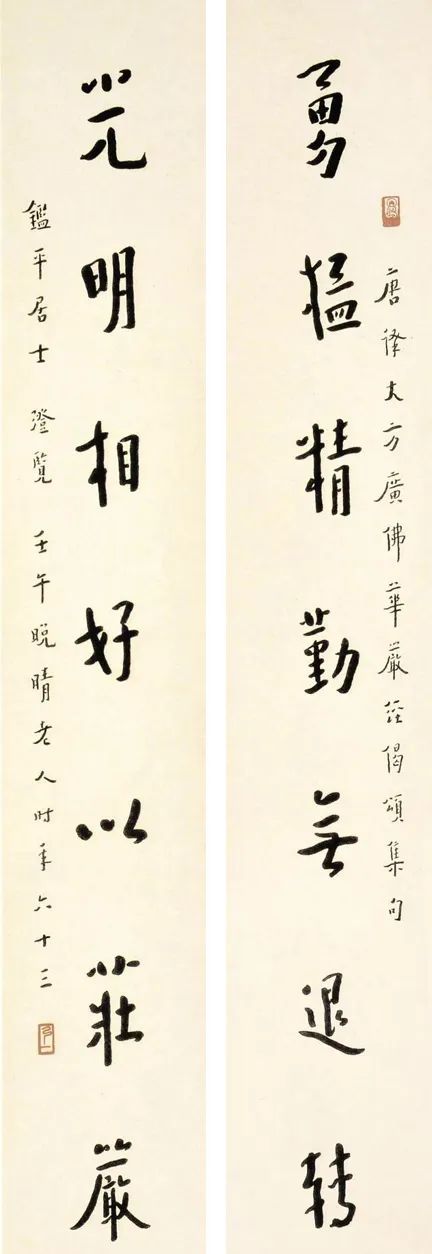 唐譯大方廣佛華嚴經偈頌集句
勇猛精勤無退轉
光明相好以莊嚴
鑑平居士 澄覽 壬午晚晴老人時年六十三